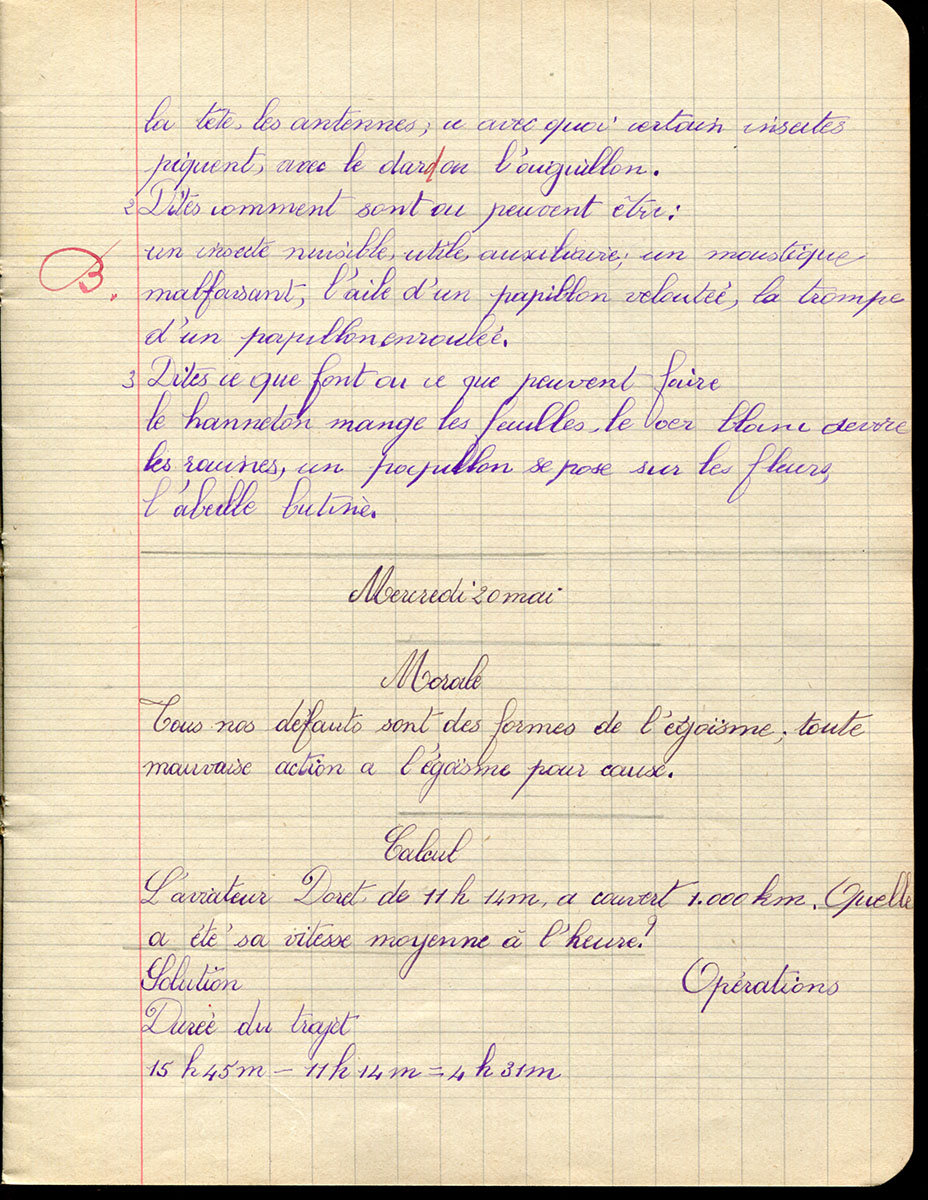 la tête, les antennes; ce avec quoi certain insectes
piquent, avec le dard ou l'aiguillon.
2 Dites comment sont ou peuvent être:
un insecte nuisible, utile, auxiliaire; un moustique
malfaisant, l'aile d'un papillon veloutée, la trompe
d'un papillon enroulée.
B.
3 Dites ce que font ou ce que peuvent faire
le hanneton mange les feuilles, le ver blanc dévore
les racines, un papillon se pose sur les fleurs,
l'abeille butine.
Mercredi 20 mai
Morale
Tous nos défauts sont des formes de l'égoïsme; toute
mauvaise action a l'égoïsme pour cause.
Calcul
L'aviateur Doret, de 11 h 14m, a couvert 1.000 km. Quelle
a été sa vitesse moyenne à l'heure?
Solution Opérations
Durée du trajet
15 h 45m - 11 h 14 m = 4 h 31m